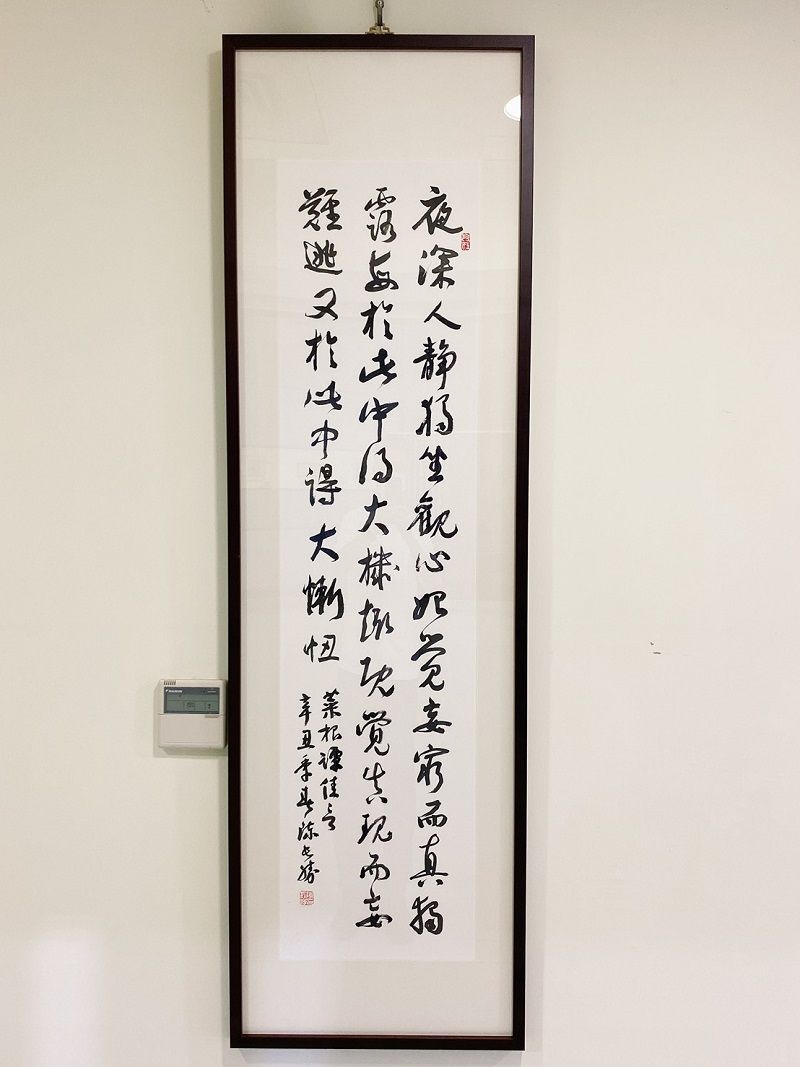 夜深人静獨坐觀心始覺妄窮而真獨
露每於此中得大機趣既覺真現而妄
難逃又於此中得大慚忸
菜根譚佳言
辛丑季春陳勝
DAIKIN